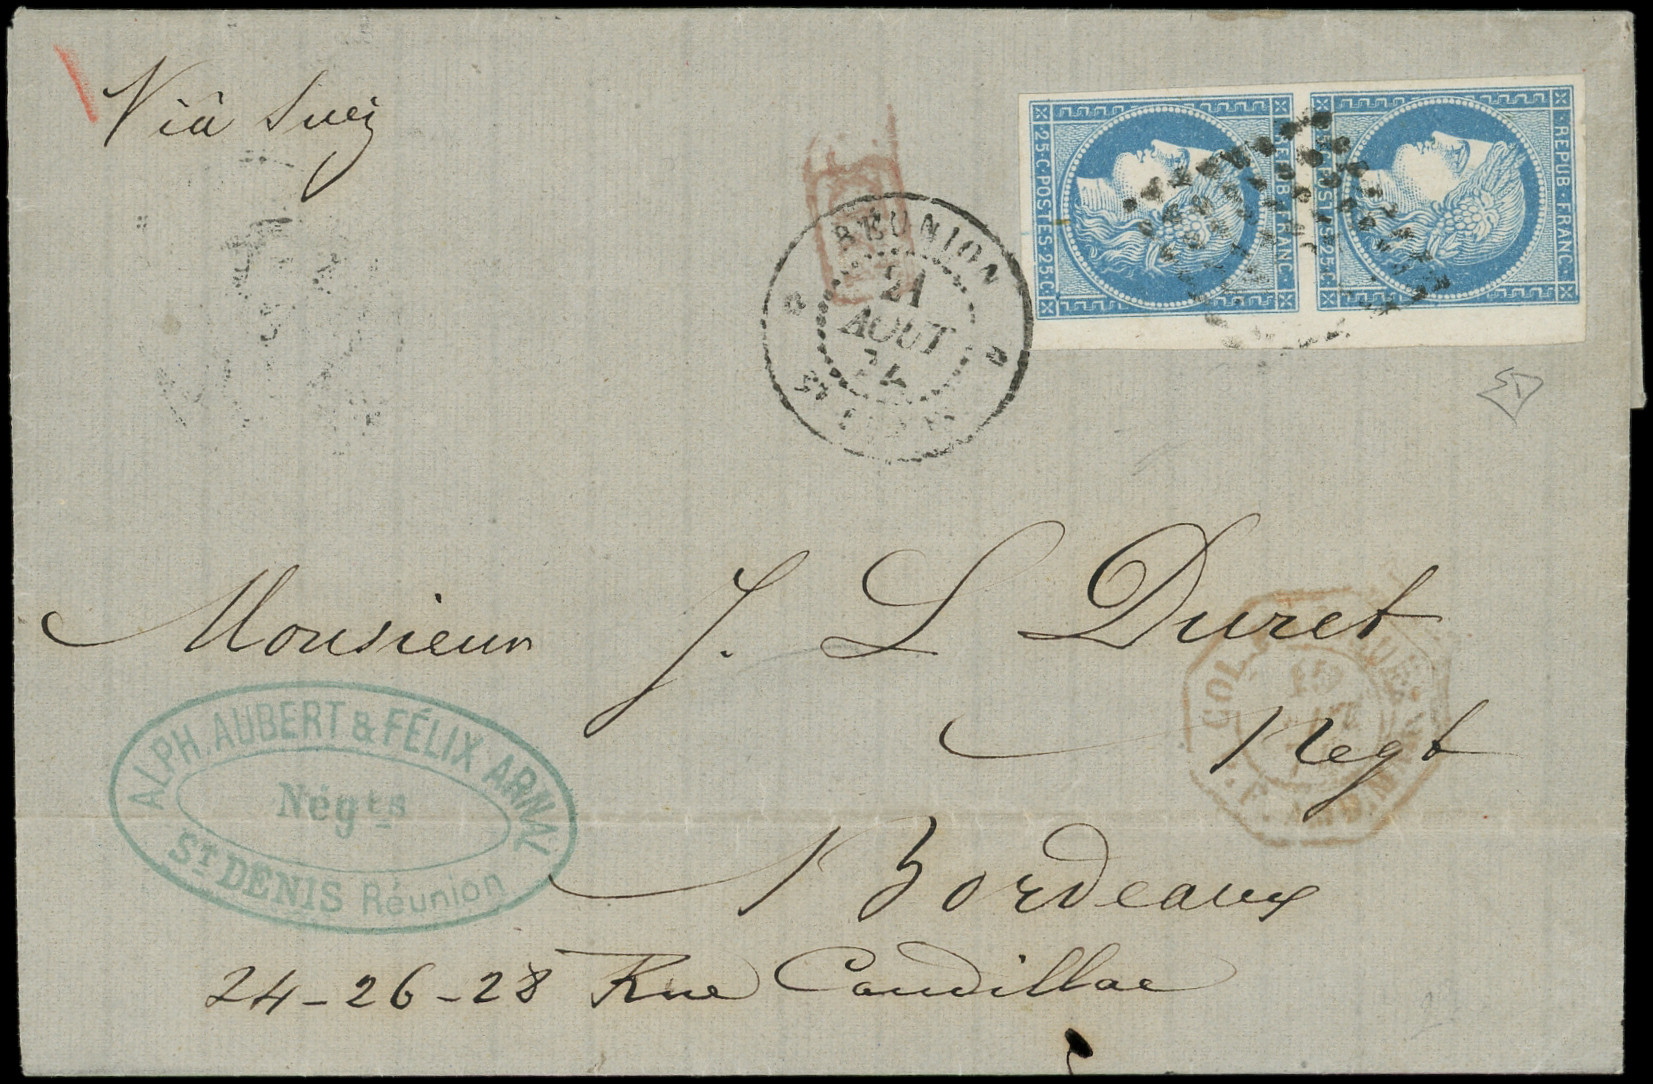 Viâ Suez
25·C·POSTES·25·C
REPUB·FRANC·
REPUB·FRANC·
RÉUNION
21
AOUT
74
ST DENIS
Monsieur J. L Duret
Negt
Bordeaux
24-26-28 Rue Candillac
ALPH. AUBERT & FÉLIX ARNAL
Négts
ST DENIS Réunion
COL.